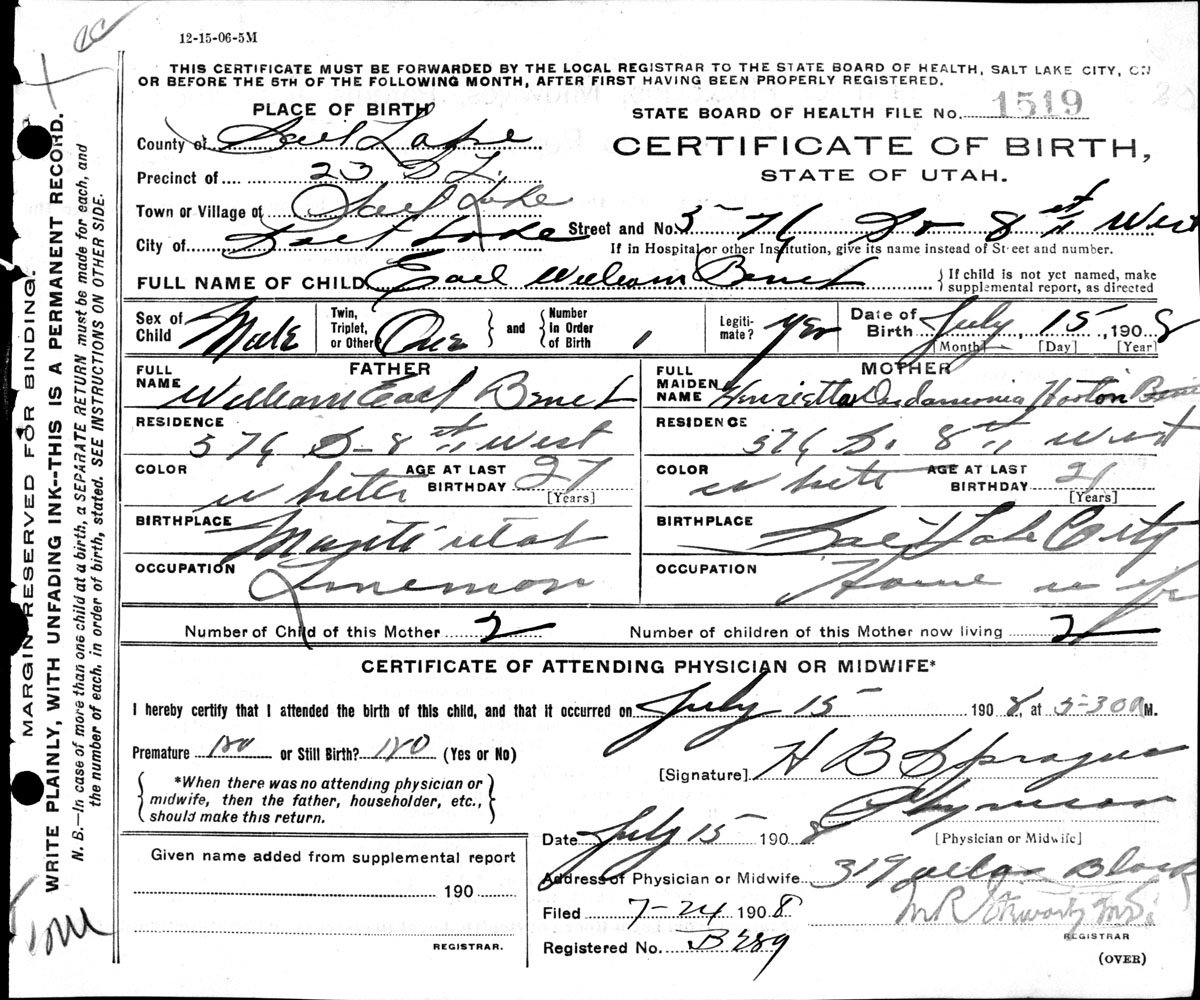 12-15-06-5M
THIS CERTIFICATE MUST BE FORWARDED BY THE LOCAL REGISTRAR TO THE STATE BOARD OF HEALTH, SALT LAKE CITY, ON
OR BEFORE THE 5TH OF THE FOLLOWING MONTH, AFTER FIRST HAVING BEEN PROPERLY REGISTERED.
PLACE OF BIRTH
STATE BOARD OF HEALTH FILE No. 1519
County of Salt Lake
CERTIFICATE OF BIRTH,
Precinct of 23 D
STATE OF UTAH.
Town or Village of Salt Lake
City of Salt Lake
Street and No. 576 So 8th West
If in Hospital or other Institution, give its name instead of Street and number.
FULL NAME OF CHILD Earl William Benet
If child is not yet named, make supplemental report, as directed
Sex of Child Male
Twin, Triplet, or Other One and Number In Order of Birth 1
Legitimate? Yes
Date of Birth July 15, 1908
[Month] [Day] [Year]
FATHER
FULL NAME William Earl Benet
RESIDENCE 576 S- 8th West
COLOR white AGE AT LAST BIRTHDAY 27
[Years]
BIRTHPLACE Manti utah
OCCUPATION
MOTHER
FULL MAIDEN NAME Henrietta Horton
RESIDENCE 576 So 8th West
COLOR white AGE AT LAST BIRTHDAY 21
[Years]
BIRTHPLACE Salt Lake City
OCCUPATION House wife
Number of Child of this Mother 2
Number of children of this Mother now living 2
CERTIFICATE OF ATTENDING PHYSICIAN OR MIDWIFE*
I hereby certify that I attended the birth of this child, and that it occurred on July 15 1908, at 5-30 A M.
Premature no or Still Birth? no (Yes or No)
[Signature] H B Sprague
*When there was no attending physician or
midwife, then the father, householder, etc.,
should make this return.
Date July 15 1908
[Physician or Midwife]
Given name added from supplemental report
190
REGISTRAR.
Address of Physician or Midwife 319 Block
Filed 7-24 1908
Registered No. B 289
REGISTRAR
(OVER)
MARGIN RESERVED FOR BINDING.
WRITE PLAINLY, WITH UNFADING INK--THIS IS A PERMANENT RECORD.
N. B.—In case of more than one child at a birth, a SEPARATE RETURN must be made for each, and
the number of each, in order of birth, stated. SEE INSTRUCTIONS ON OTHER SIDE.